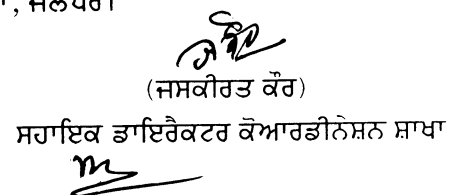 , ਜਲੰਧਰ।
(ਜਸਕੀਰਤ ਕੌਰ)
ਸਹਾਇਕ ਡਾਇਰੈਕਟਰ ਕੋਆਰਡੀਨੇਸ਼ਨ ਸ਼ਾਖਾ